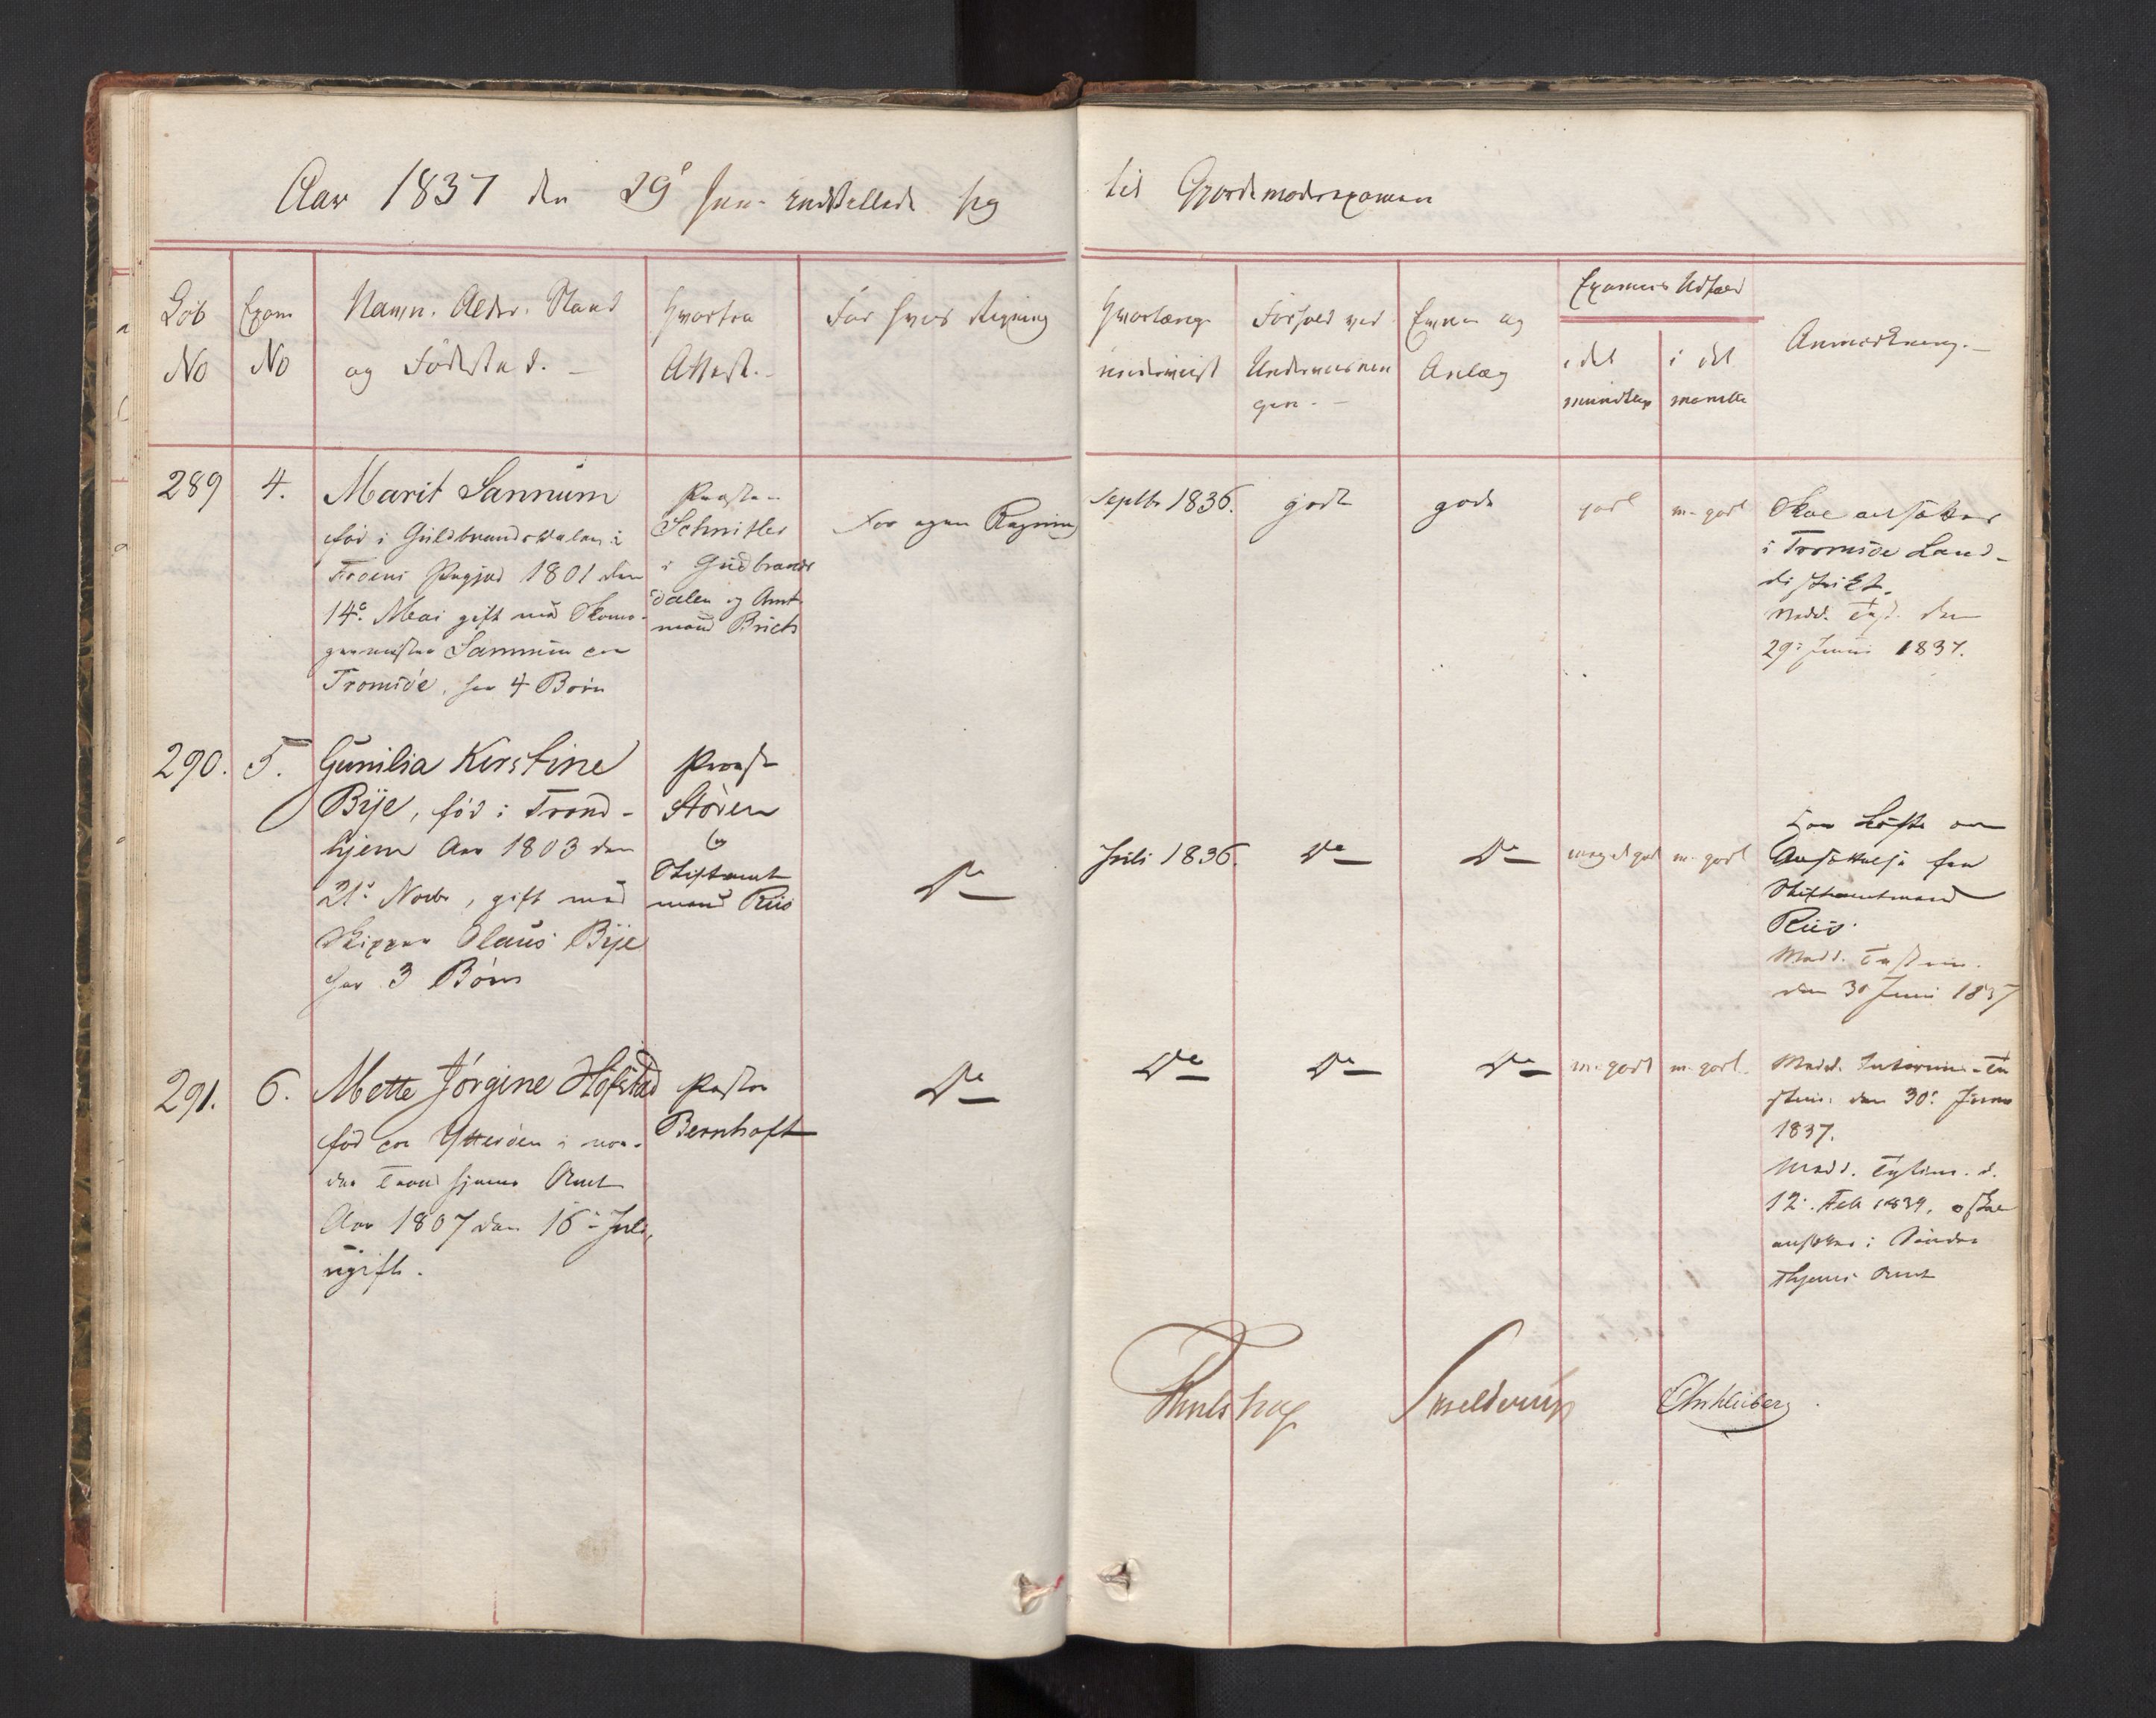 Aar 1837 den 29de Juni indstillede sig
til Gjordemoderexamen
Løb
No
Exam
No
Navn. Alder. Stand
og Fødested. –
Hvorfra
Attest. –
For hvis Regning
Hvorlænge
underviist
Forhold ved
Undervisnin
gen. –
Evner og
Anlæg
Examens Udfald
i det
mundtlige
i det
manuelle
Anmærkning. –
289
4.
Marit Sannum
fød i Guldbrandsdalen i
Froens Prgjeld 1801 den
14de Mai gift med
Sannum
Tromsöe, har 4 Börn
Schnitler
i Gudbrands
dalen og Amt
mand
For egen Regning
Septbr 1836.
godt
gode
godt
m. godt
Skal ansættes
i Tromsöe Land-
distrikt.
Medd. Test. den
29de Juni 1837.
290.
5.
Gunilia Kirstine
Bije, fød i Trond-
hjem Aar 1803 den
21de Novbr, gift med
Skipper Olaus Bije
har 3 Börn
Provst
Stören
og
Stiftamt
mand Riis
Do
Juli 1836.
Do
Do
meget godt
m. godt
Har Löfte om
Ansættelse fra
Stiftamtmand
Riis.
Medd. Testim.
den 30 Juni 1837
291.
6.
Mette Jörgine Hofstad
fød paa Ytteröen i nor-
dre Trondhjems Amt
Aar 1807 den 16de Juli,
ugift.
Pastor
Bernhoft
Do
Do
Do
Do
m. godt
m. godt.
Medd. Interims-Te
stim. den 30de Juni
1837.
Medd. Testim. d.
12. Feb 1839, skal
ansættes i Söndre
Thjems Amt
Thulstrup
Skielderup
Chr Heiberg